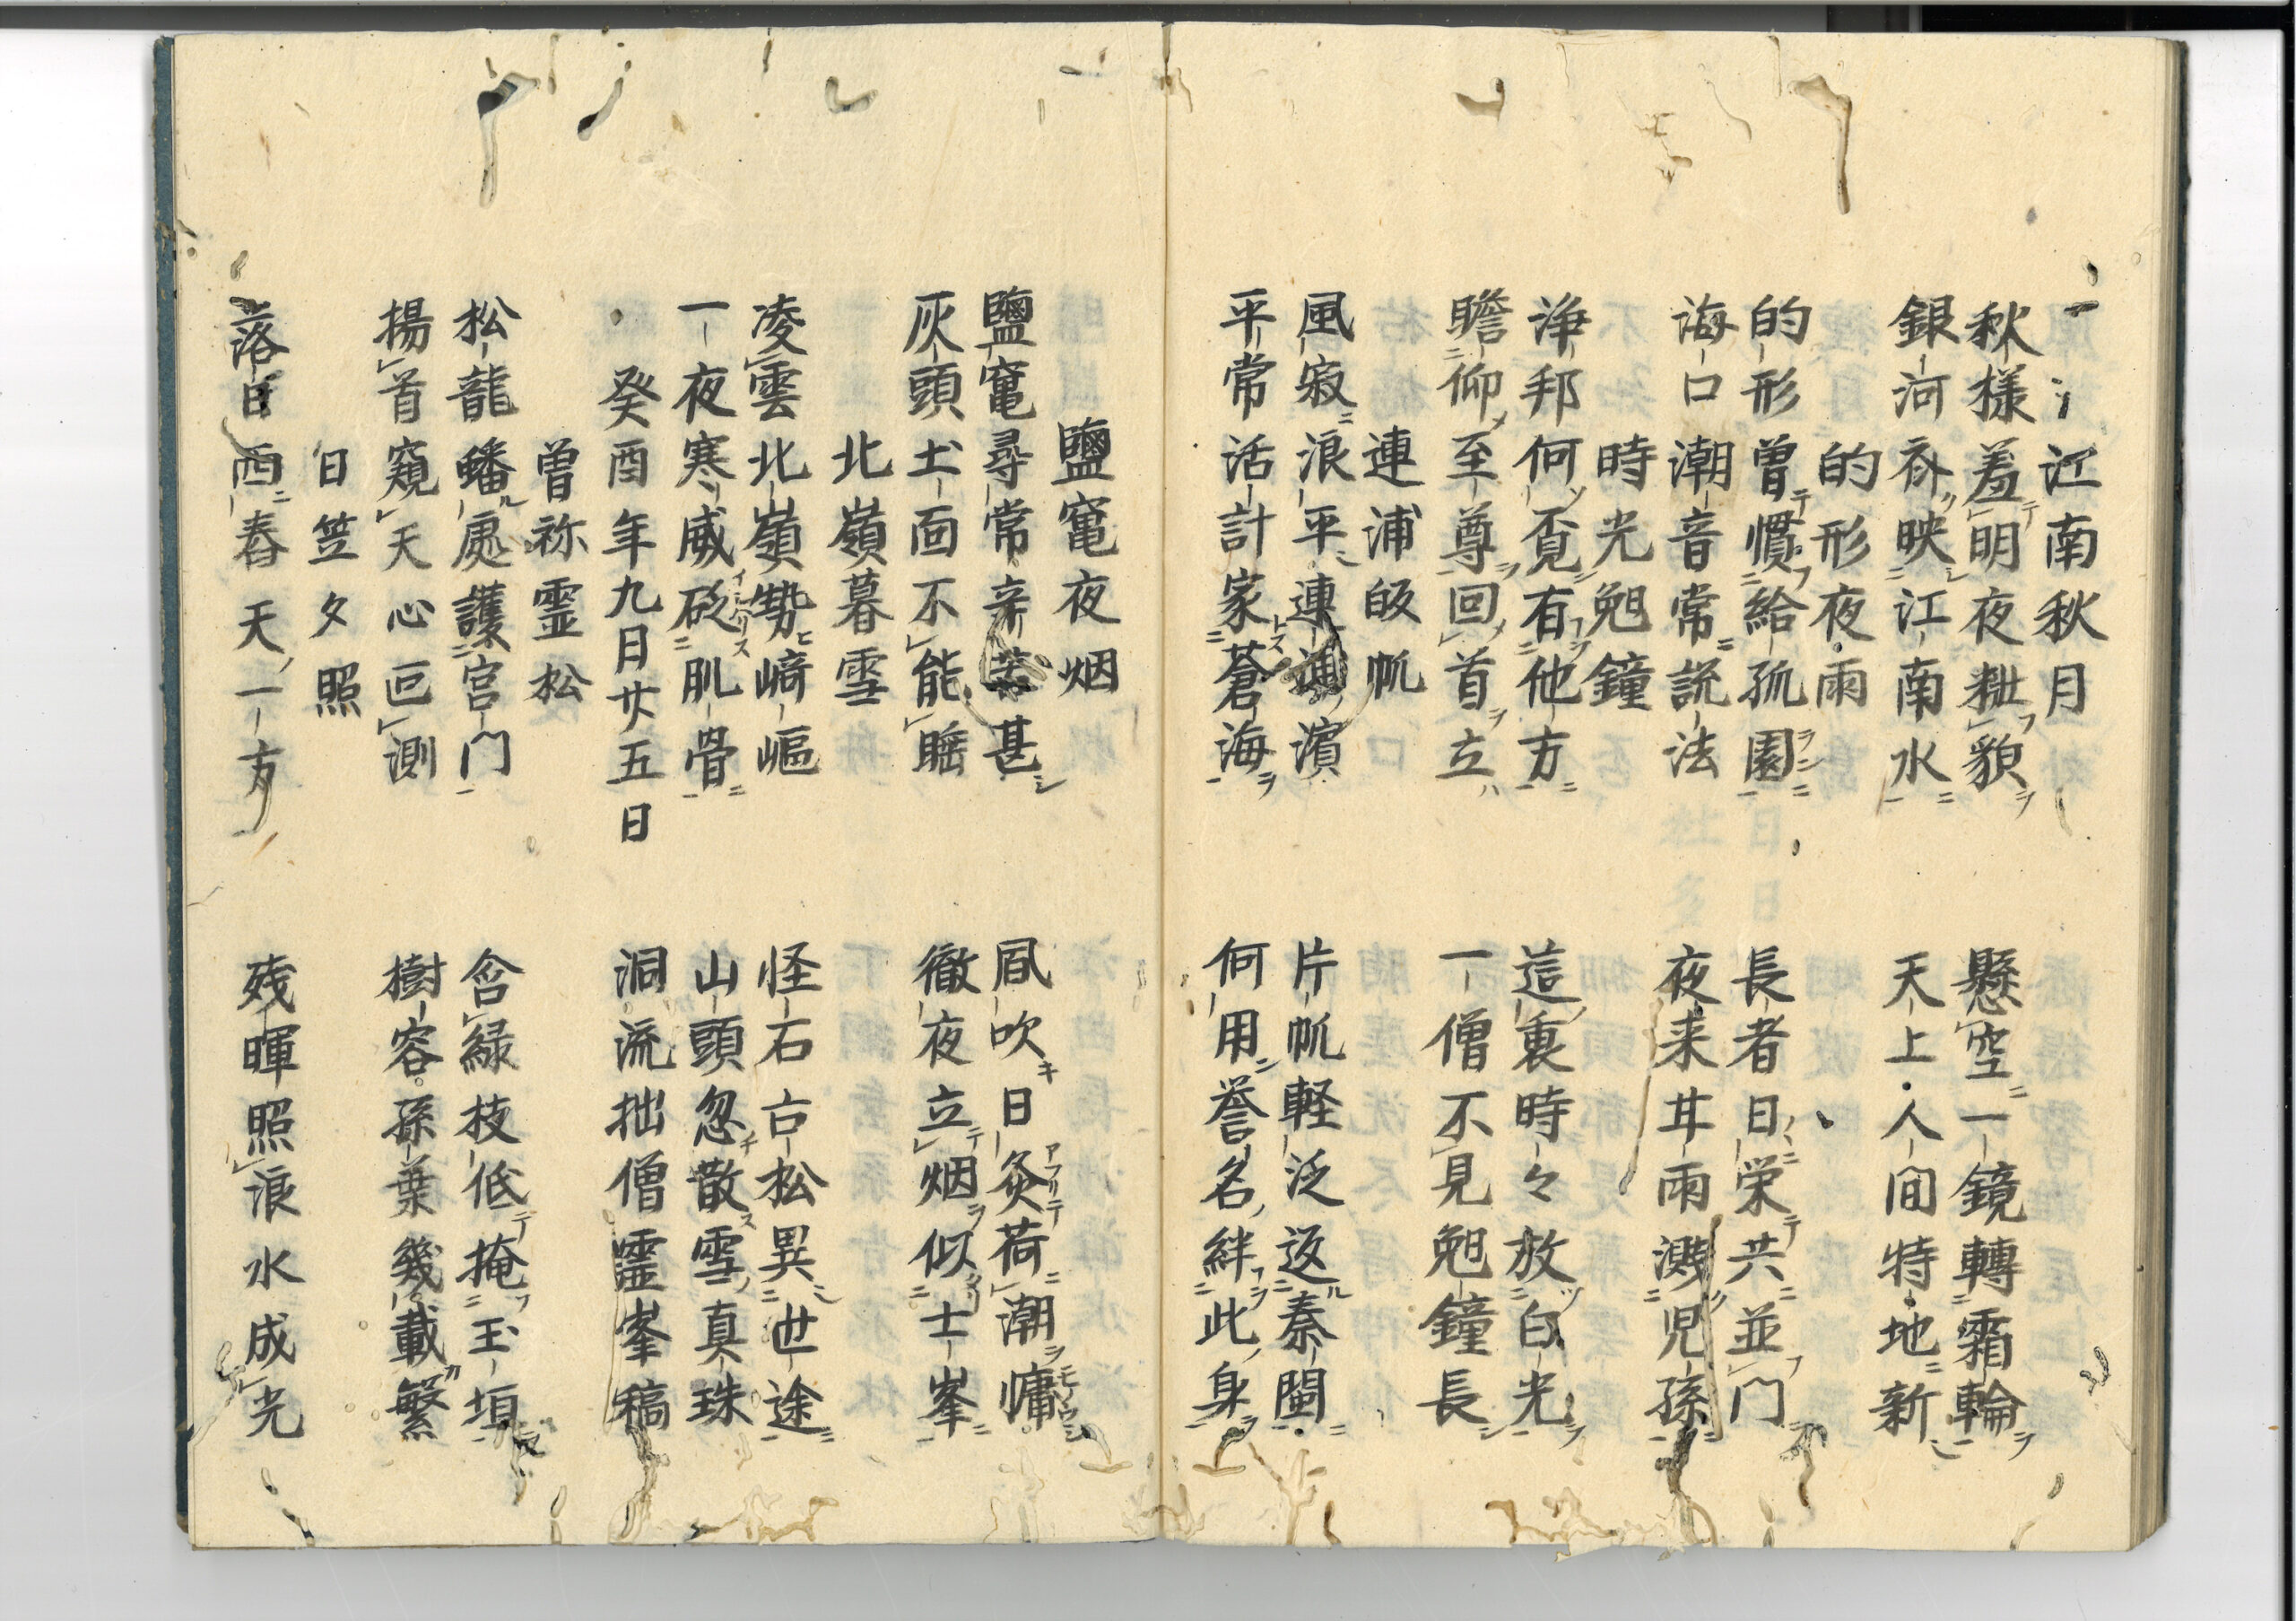 江南秋月
秋様羞明夜粃貌 懸空一鏡轉霜輪
銀河斜映江南水 天上人間特地新
的形夜雨
的形曽慣給孤園 長者日栄共並門
海口潮音常説法 夜来井雨濺児孫
時光兠鐘
浄邦何覔有他方 這裏時々放白光
瞻仰至尊回首立 一僧不見兠鐘長
連浦皈帆
風寂浪平連浦濱 片帆軽泛返秦閩
平常活計家蒼海 何用誉名絆此身
鹽竃夜烟
鹽竃尋常辛苦甚 凨吹日灸荷潮慵
灰頭土面不能眠 徹夜立烟似士峯
北嶺暮雪
凌雲北嶺勢﨑嶇 怪石古松異世途
一夜寒威砭肌骨 山頭忽散雪真珠
癸酉年九日廿五日 洞流拙僧霊峯稿
曽祢霊松
松龍蟠處護宮門 含緑枝低掩玉垣
揚首窺天心叵測 樹容孫葉幾載繁
日笠夕照
落日西舂天一方 残暉照浪水成光